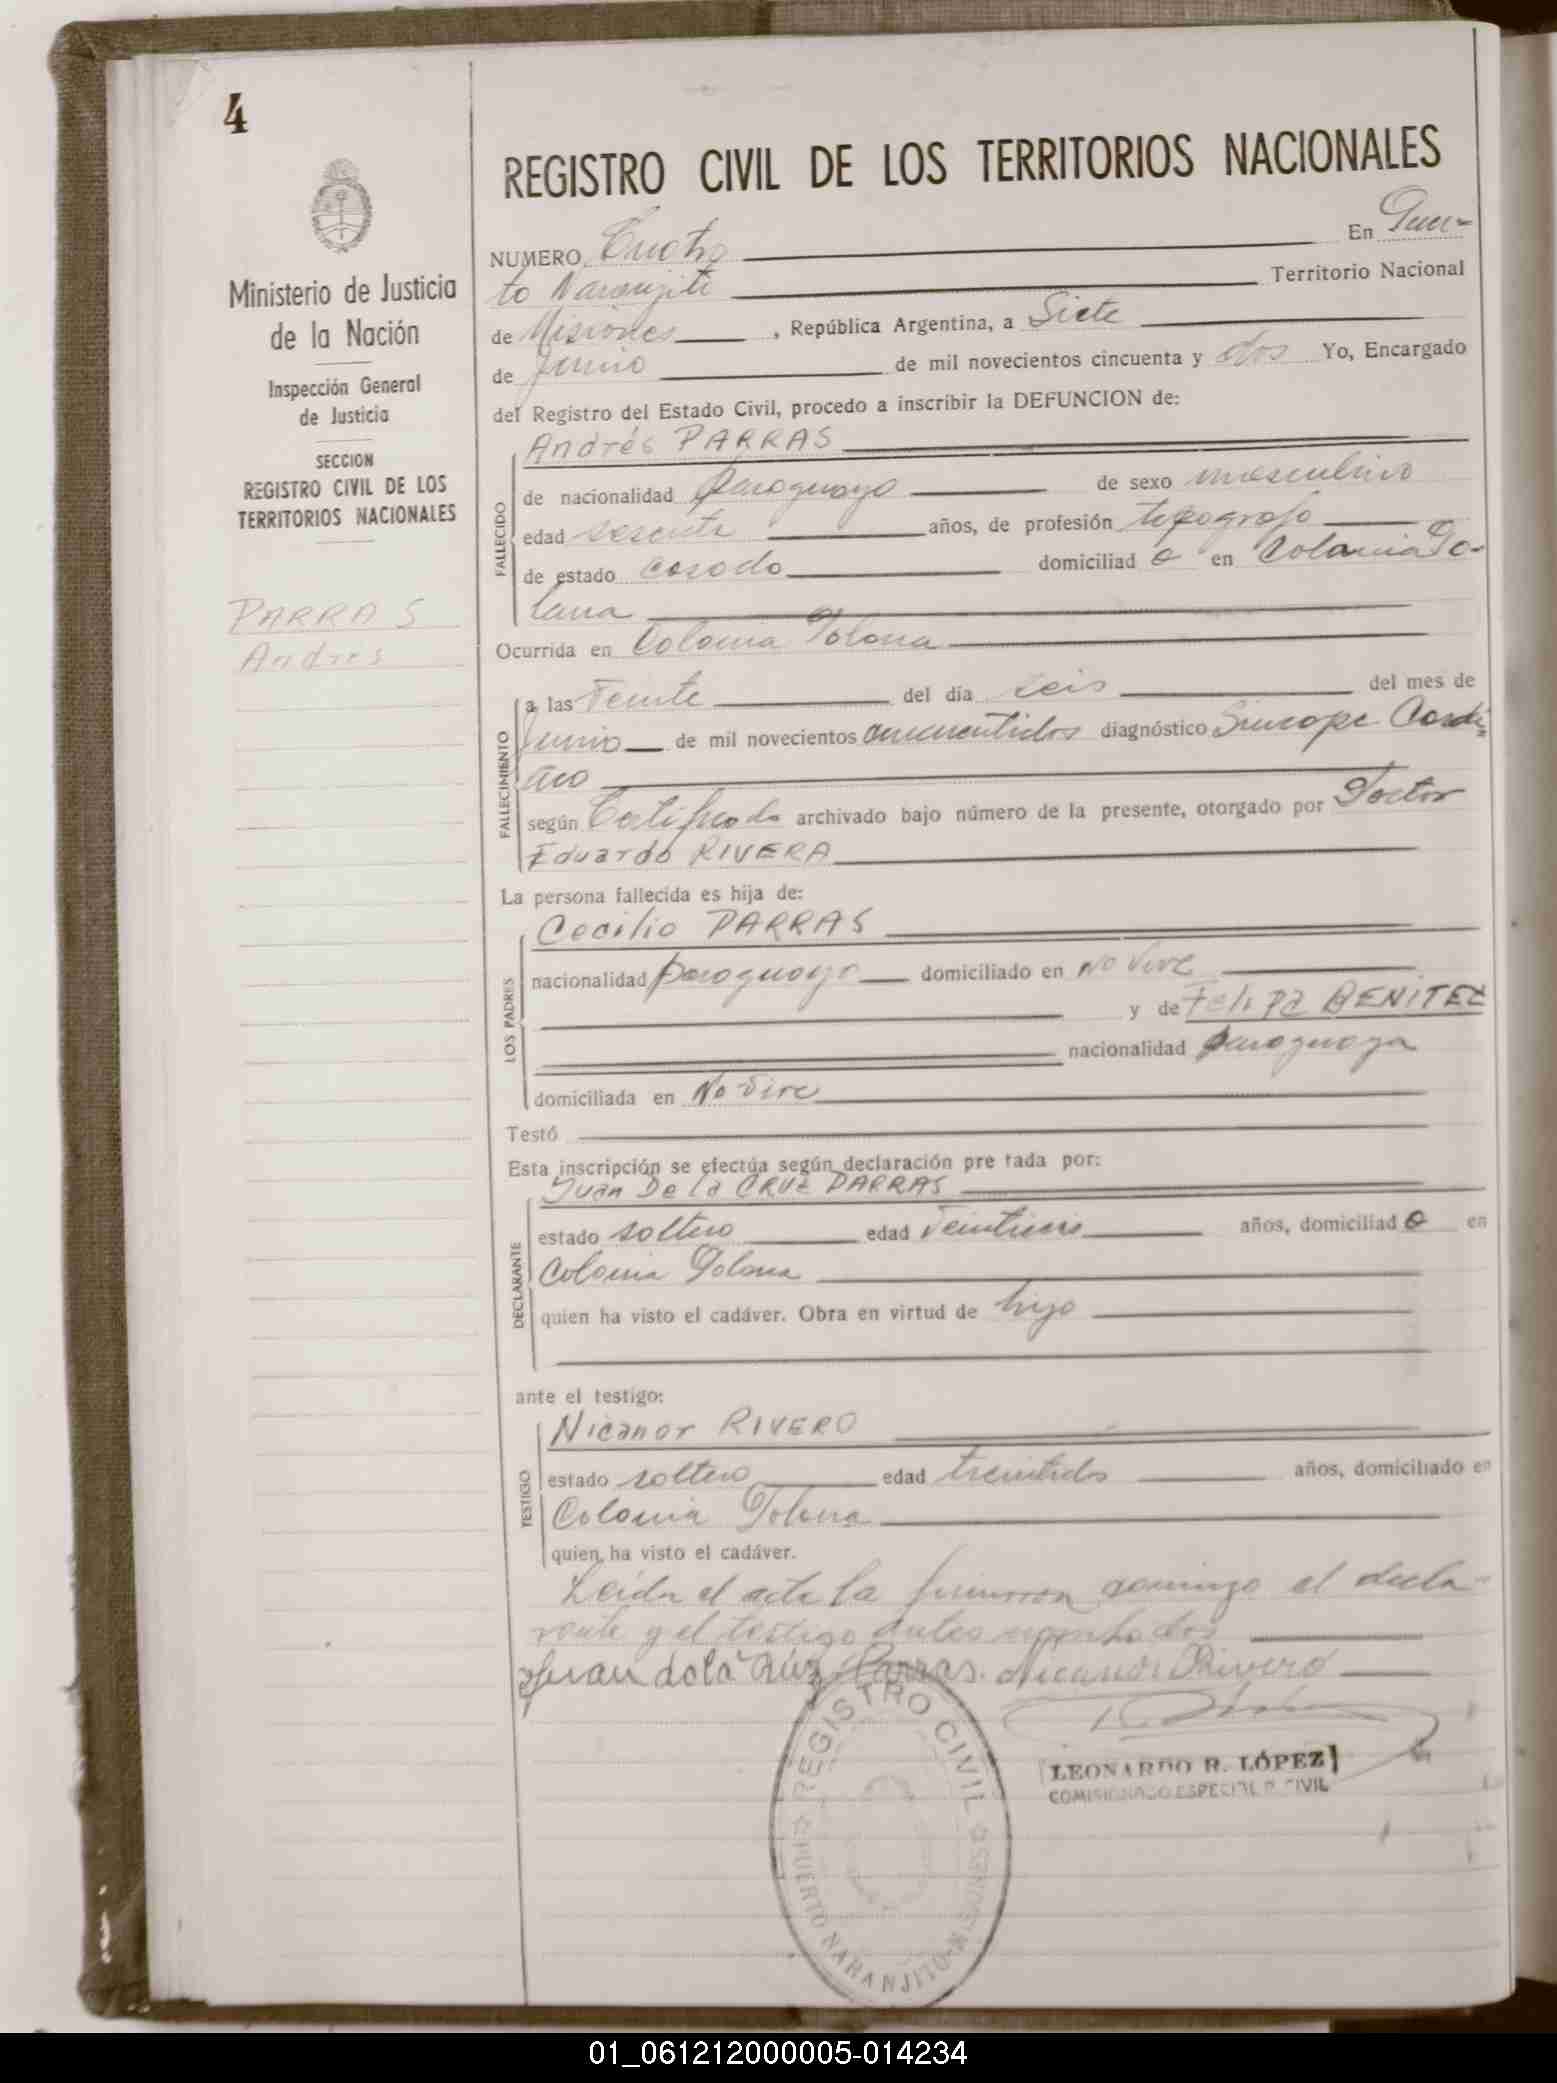 4
Ministerio de Justicia
de la Nación
Inspección General
de Justicia
SECCION
REGISTRO CIVIL DE LOS
TERRITORIOS NACIONALES
PARRAS
Andres
REGISTRO CIVIL DE LOS TERRITORIOS NACIONALES
NUMERO Cuatro En Puer-
to Naranjito Territorio Nacional
de Misiones, República Argentina, a Siete
de Junio de mil novecientos cincuenta y dos Yo, Encargado
del Registro del Estado Civil, procedo a inscribir la DEFUNCION de:
FALLECIDO
Andrés PARRAS
de nacionalidad paraguayo de sexo masculino
edad sesenta años, de profesión topografo
de estado casado domiciliad o en Colonia Po-
lana
Ocurrida en Colonia Polona
FALLECIMIENTO
a las veinte del día seis del mes de
Junio de mil novecientos cincuentidos diagnóstico Sincope Cardi-
aco
según Certificado archivado bajo número de la presente, otorgado por Doctor
Eduardo RIVERA
La persona fallecida es hija de:
LOS PADRES
Cecilio PARRAS
nacionalidad paraguayo domiciliado en No vive
y de Felipa BENITEZ
nacionalidad paraguaya
domiciliada en No vive
Testó
Esta inscripción se efectúa según declaración pre tada por:
DECLARANTE
Juan De la CRUZ PARRAS
estado soltero edad veintiseis años, domiciliad o en
Colonia Polona
quien ha visto el cadáver. Obra en virtud de hijo
ante el testigo:
TESTIGO
Nicanor RIVERO
estado soltero edad treintidos años, domiciliado en
Colonia Polona
quien ha visto el cadáver.
Leida el acta la firmaron conmigo el decla-
rante y el testigo antes nombrados
Juan dela Cruz Parras. Nicanor Rivero
REGISTRO CIVIL
PUERTO NARANJITO-MISIONES
LEONARDO R. LÓPEZ
COMISIONADO ESPECIAL R. CIVIL
01_061212000005-014234